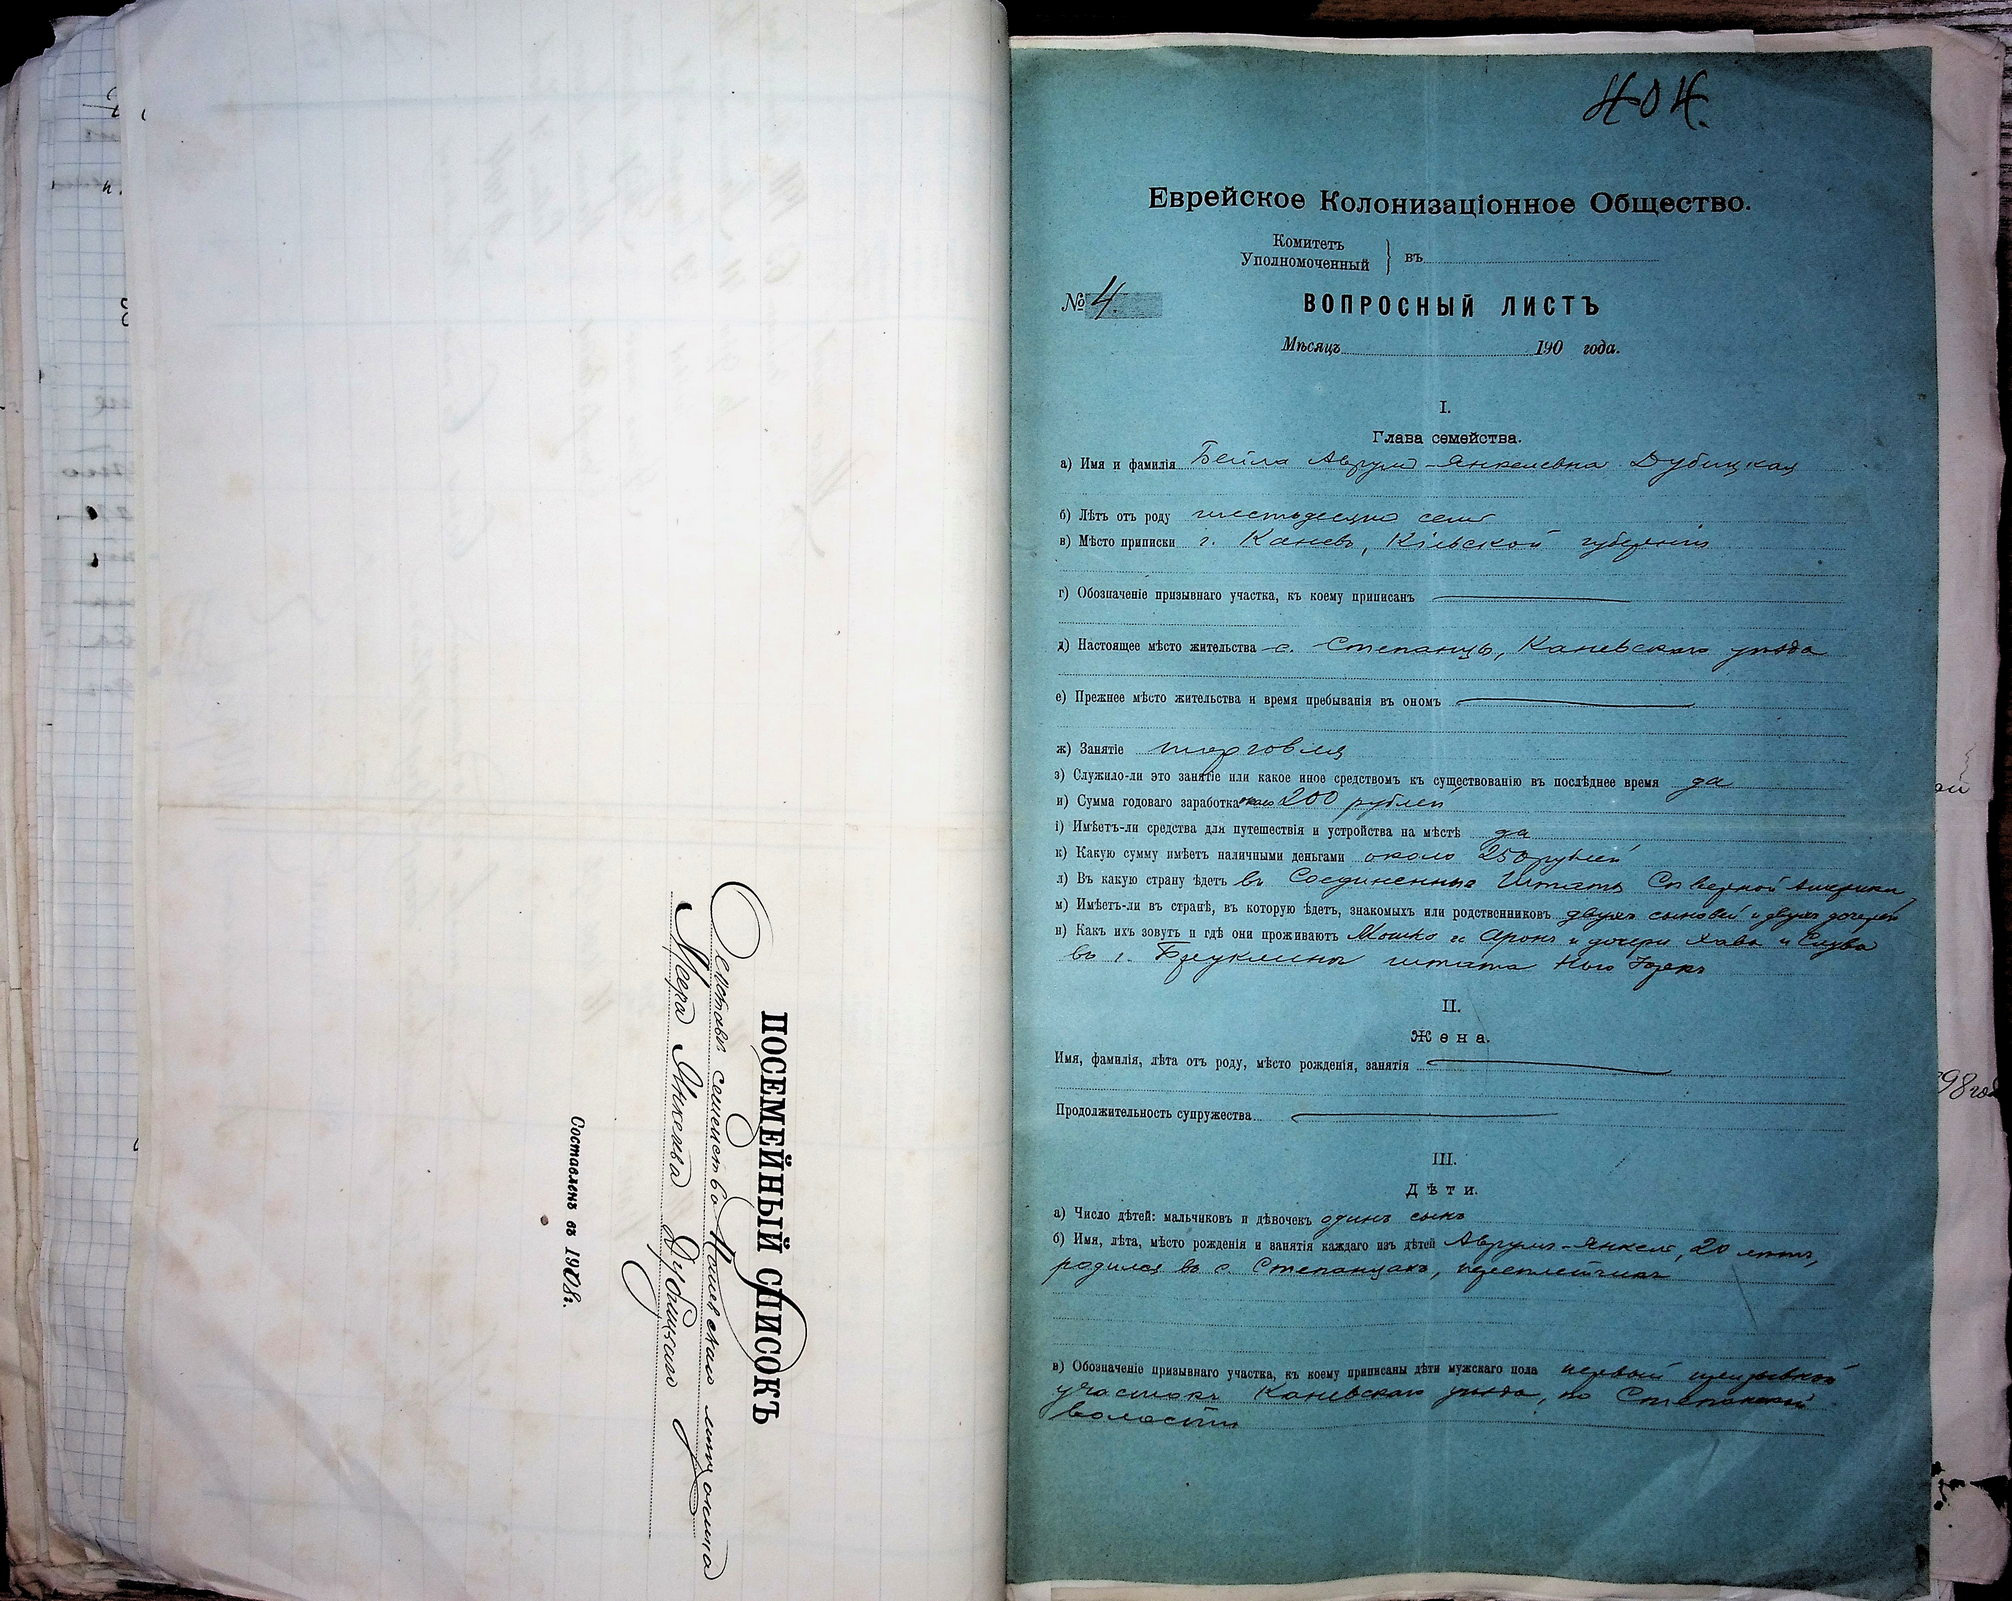 ПОСЕМЕЙНЫЙ СПИСОКЪ
семейства Каневскаго мѣщанина
Мера Янкелева Дубицкаго
Составленъ въ 1908 г.
404.
Еврейское Колонизаціонное Общество.
Комитетъ
Уполномоченный } въ
№ 4.
ВОПРОСНЫЙ ЛИСТЪ
Мѣсяцъ 190 года.
I.
Глава семейства.
а) Имя и фамилія Бейла Аврумъ-Янкелевна Дубицкая
б) Лѣтъ отъ роду шестьдесятъ семь
в) Мѣсто приписки г. Каневъ, Кіевской губерніи
г) Обозначеніе призывнаго участка, къ коему приписанъ
д) Настоящее мѣсто жительства с. Степанцы, Каневскаго уѣзда
е) Прежнее мѣсто жительства и время пребыванія въ ономъ
ж) Занятіе торговля
з) Служило-ли это занятіе или какое иное средствомъ къ существованію въ послѣднее время да
и) Сумма годоваго заработка около 200 рублей
і) Имѣетъ-ли средства для путешествія и устройства на мѣстѣ да
к) Какую сумму имѣетъ наличными деньгами около 250 рублей
л) Въ какую страну ѣдетъ въ Соединенные Штаты Сѣверной Америки
м) Имѣетъ-ли въ странѣ, въ которую ѣдетъ, знакомыхъ или родственниковъ двухъ сыновей и двухъ дочерей
н) Какъ ихъ зовутъ и гдѣ они проживаютъ Мошко и Аронъ и дочери Хава и
въ г. Бруклинѣ штата Нью Іоркъ
II.
Жена.
Имя, фамилія, лѣта отъ роду, мѣсто рожденія, занятія
Продолжительность супружества
III.
Дѣти.
а) Число дѣтей: мальчиковъ и дѣвочекъ одинъ сынъ
б) Имя, лѣта, мѣсто рожденія и занятія каждаго изъ дѣтей Аврумъ-Янкель, 20 лѣтъ,
родился въ с. Степанцахъ, переплетчикъ
в) Обозначеніе призывнаго участка, къ коему приписаны дѣти мужскаго пола первый призывной
участокъ Каневскаго уѣзда, по Степанской
волости
98 год